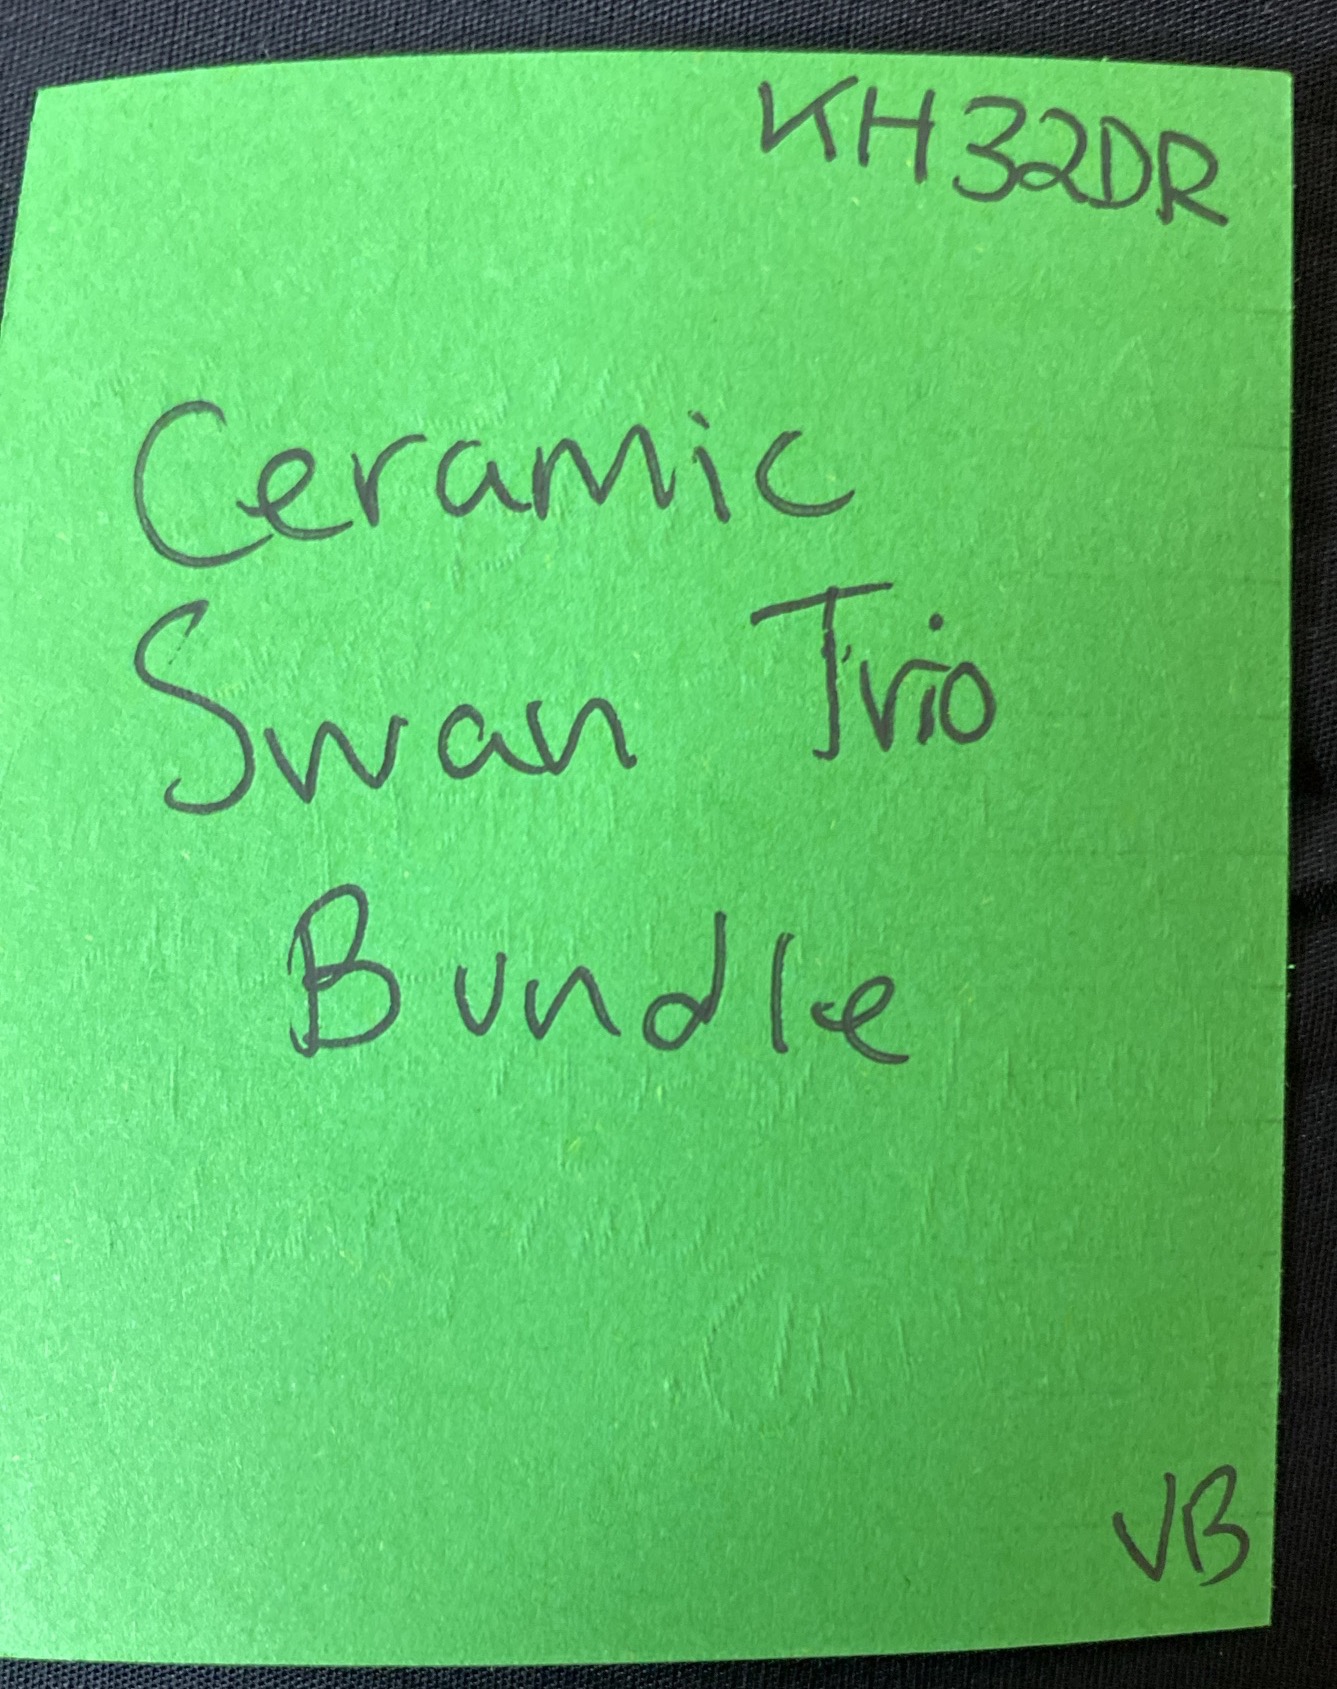 KH32DR
Ceramic
Swan Trio
Bundle
VB